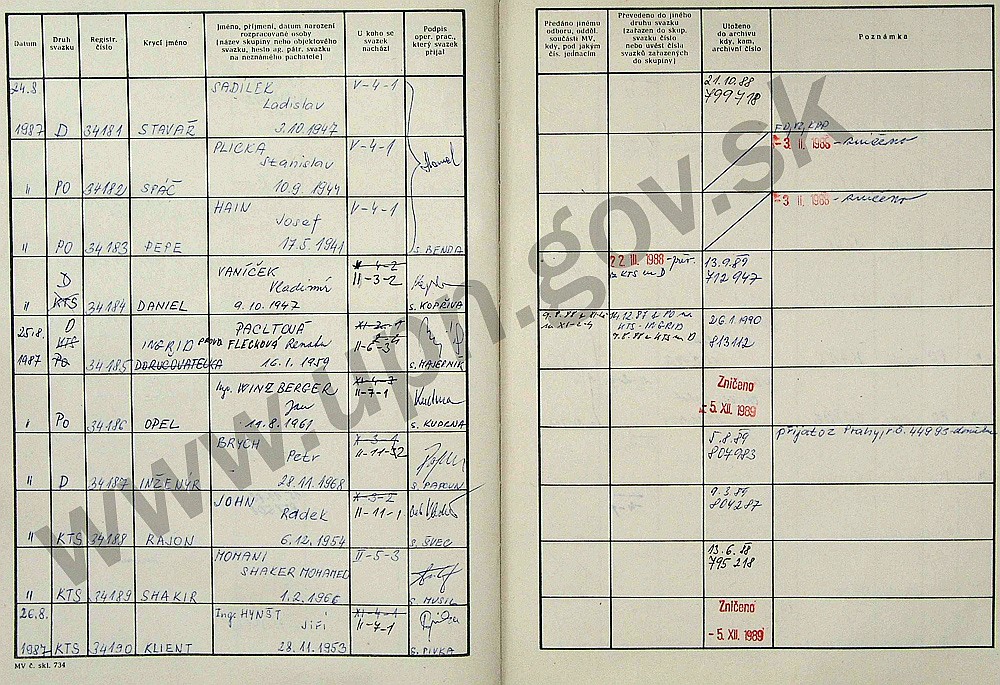 Datum
Druh svazku
Registr. číslo
Krycí jméno
Jméno, příjmení, datum narození
rozpracované osoby
(název skupiny nebo objektového
svazku, heslo ag. pátr. svazku
na neznámého pachatele)
U koho se
svazek
nachází
Podpis
oper. prac.,
který svazek
přijal
Předáno jinému
odboru, odděl.
součásti MV,
kdy, pod jakým
čís. jednacím
Převedeno do jiného
druhu svazku
(zařazen do skup.
svazku číslo
nebo uvést čísla
svazků zařazených
do skupiny)
Uloženo
do archivu
kdy, kam,
archivní číslo
Poznámka
24.8 SADILEK V-4-1 21.10.88
Ladislav 799718
1987 D 34181 STAVAŘ 3.10.1947
PLICKA V-4-1 -3. II. 1988 - zničeno
Stanislav
" PO 34182 SPÁČ 10.9.1944
HAIN V-4-1 -3 II. 1988 - zničeno
Josef
" PO 34183 PEPE 17.5.1941 s. BENDA
VANÍČEK X-4-2 22. III. 1988 13.9.89
D Vladimír II-3-2 z KTS na D 712947
" KTS 34184 DANIEL 9.10.1947 s. KOPŘIVA
25.8. D PACLTOVÁ
KTS INGRID FLEČKOVÁ Renata II-6-3 KTS - INGRID 26.1.1990
1987 PO 34185 DORUČOVATELKA 16.1.1959 s. MAJERNÍK 813112
Ing. WINZBERGER XI-4-7 Zničeno
Jan II-7-1 Kuderna -5. XII. 1989
PO 34186 OPEL 19.8.1961 s. KUDERNA
BRYCH X-3-1 5.8.89 přijat oz Prahy, r.č. 44993
Petr II-11-52 804983
" D 34187 INŽENÝR 28.11.1968
JOHN X-3-2 9.3.89
Radek II-11-1 804287
" KTS 34188 RAJON 6.12.1954 s. ŠVEC
MOMANI II-5-3 13.6.88
SHAKER MOHAMED 795218
" KTS 34189 SHAKIR 1.2.1966 s. MUSIL
26.8. Ing. HYNŠT XI-4-1 Zničeno
Jiří II-7-1 -5. XII. 1989
1987 KTS 34190 KLIENT 28.11.1953 s. PIVKA
MV č. skl. 734
www.upn.gov.sk